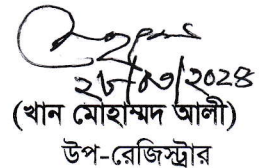 ২৮/০৩/২০২৪
(খান মোহাম্মদ আলী)
উপ-রেজিস্ট্রার